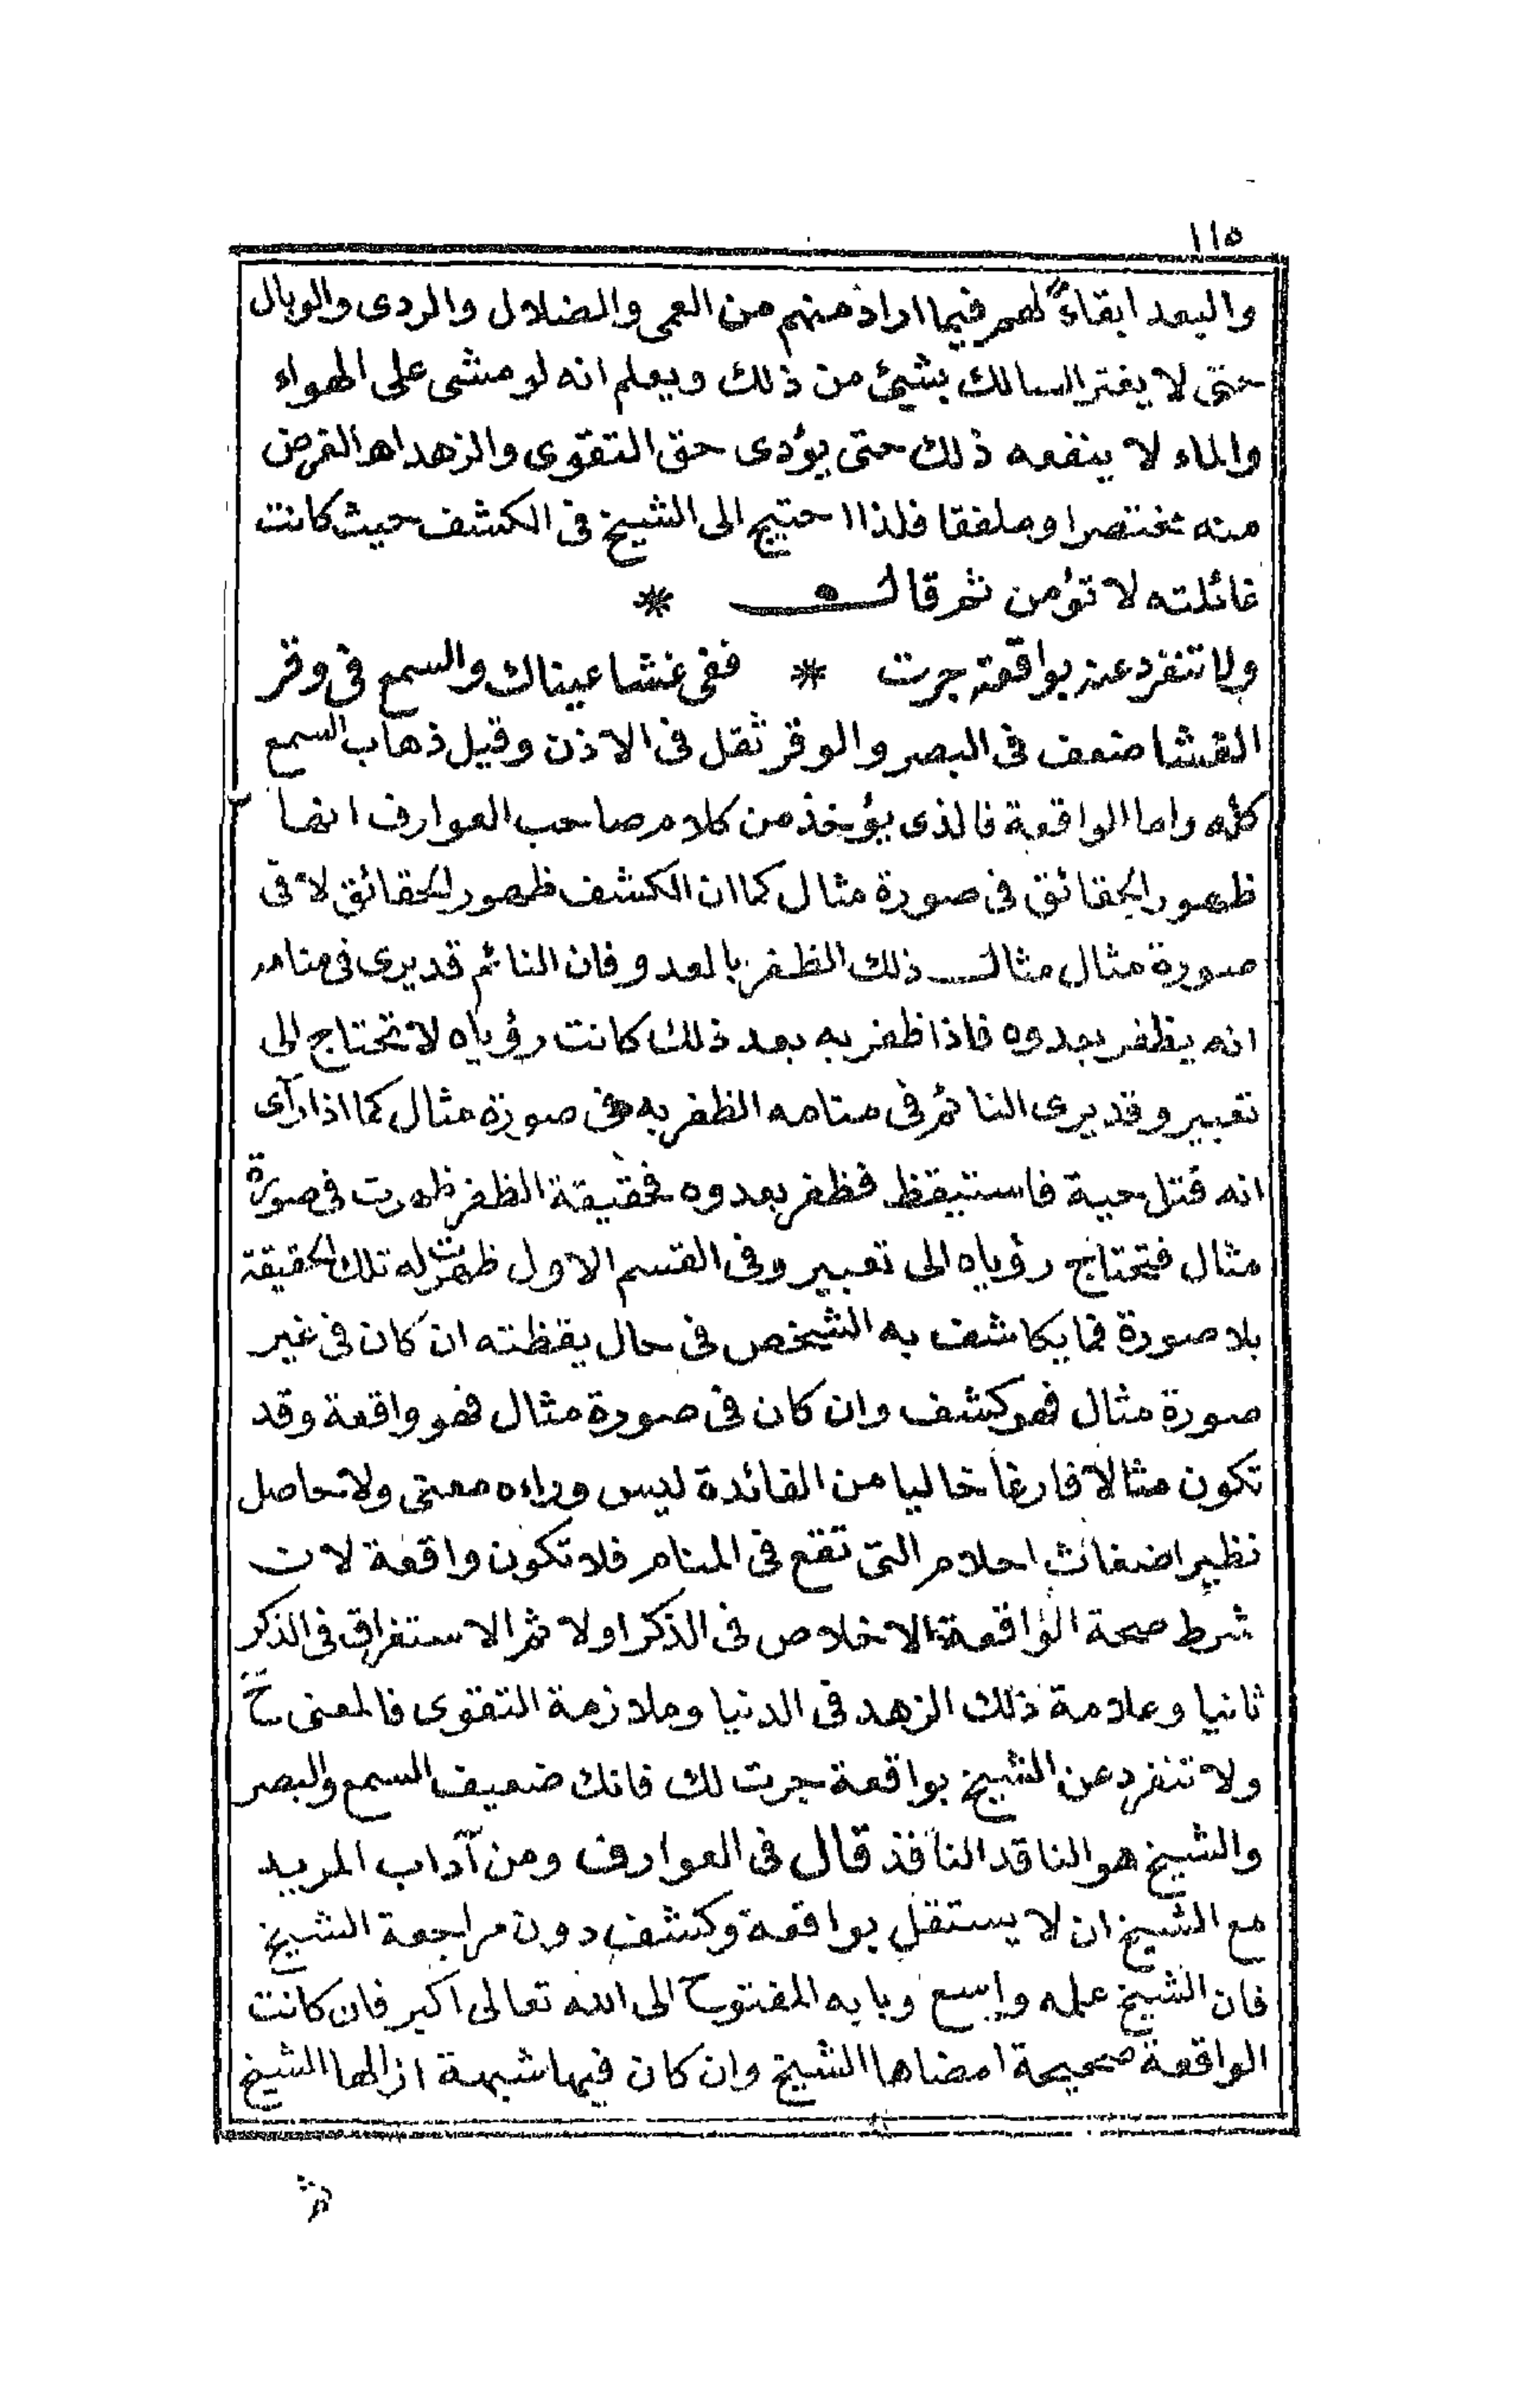 ١١٥
والبعد ابقاءً لهم فيما اراد منهم من العمى والضلال والردى والوبال
حتى لا يغتر السالك بشيئ من ذلك ويعلم انه لو مشى على الهواء
والماء لا ينفعه ذلك حتى يؤدى حق التقوى والزهد اهـ الغرض
منه مختصرا وملفقا فلذا احتيج الى الشيخ فى الكشف حيث كانت
غائلته لا تؤمن ثم قال *
ولا تنفرد عنه بواقعة جرت * ففى غشا عيناك والسمع فى وقر
الغشا ضعف فى البصر والوقر ثقل فى الاذن وقيل ذهاب السمع
كله واما الواقعة فالذى يؤخذ من كلام صاحب العوارف انها
ظهور الحقائق فى صورة مثال كما ان الكشف ظهور الحقائق لا فى
صورة مثال مثال ذلك الظفر بالعدو فان النائم قد يرى فى منامه
انه يظفر بعدوه فاذا ظفر به بعد ذلك كانت رؤياه لا تحتاج الى
تعبير وقد يرى النائم فى منامه الظفر به فى صورة مثال كما اذا رآى
انه قتل حية فاستيقظ فظفر بعدوه فحقيقة الظفر ظهرت فى صورة
مثال فتحتاج رؤياه الى تعبير وفى القسم الاول ظهرت له تلك الحقيقة
بلا صورة فما يكاشف به الشخص فى حال يقظته ان كان فى غير
صورة مثال فهو كشف وان كان فى صورة مثال فهو واقعة وقد
تكون مثالا فارغا خاليا من الفائدة ليس وراءه معنى ولا حاصل
نظير اضغاث احلام التى تقع فى المنام فلا تكون واقعة لان
شرط صحة الواقعة الاخلاص فى الذكر اولا ثم الاستغراق فى الذكر
ثانيا وعلامة ذلك الزهد فى الدنيا وملازمة التقوى فالمعنى ح
ولا تنفرد عن الشيخ بواقعة جرت لك فانك ضعيف السمع والبصر
والشيخ هو الناقد النافذ قال فى العوارف ومن آداب المريد
مع الشيخ ان لا يستقل بواقعة وكشف دون مراجعة الشيخ
فان الشيخ علمه واسع وبابه المفتوح الى الله تعالى اكبر فان كانت
الواقعة صحيحة امضاها الشيخ وان كان فيها شبهة ازالها الشيخ